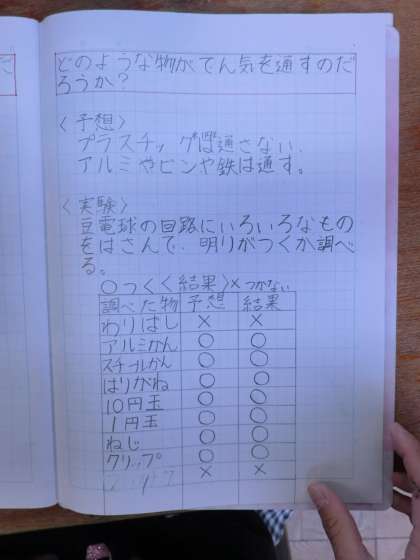 どのような物がでん気を通すのだ
ろうか？
〈予想〉
プラスチックは通さない.
アルミやビンや鉄は通す。
〈実験〉
豆電球の回路にいろいろなもの
をはさんで、明りがつくか調べ
る。
○つく〈結果〉×つかない
調べた物 予想 結果
わりばし × ×
アルミかん ○ ○
スチールかん ○ ○
はりがね ○ ○
10円玉 ○ ○
1円玉 ○ ○
ねじ ○ ○
クリップ ○ ○
× ×